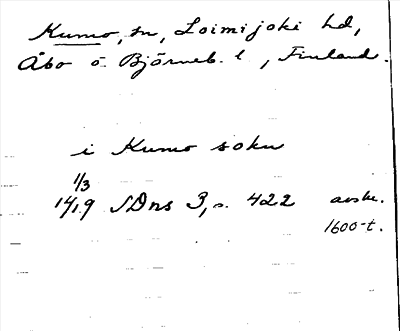 Kumo, sn, Loimijoki hd,
Åbo o. Björneb. l, Finland.
i Kumo sokn
1/3
1419 SDns 3, s. 422 avskr.
1600-t.